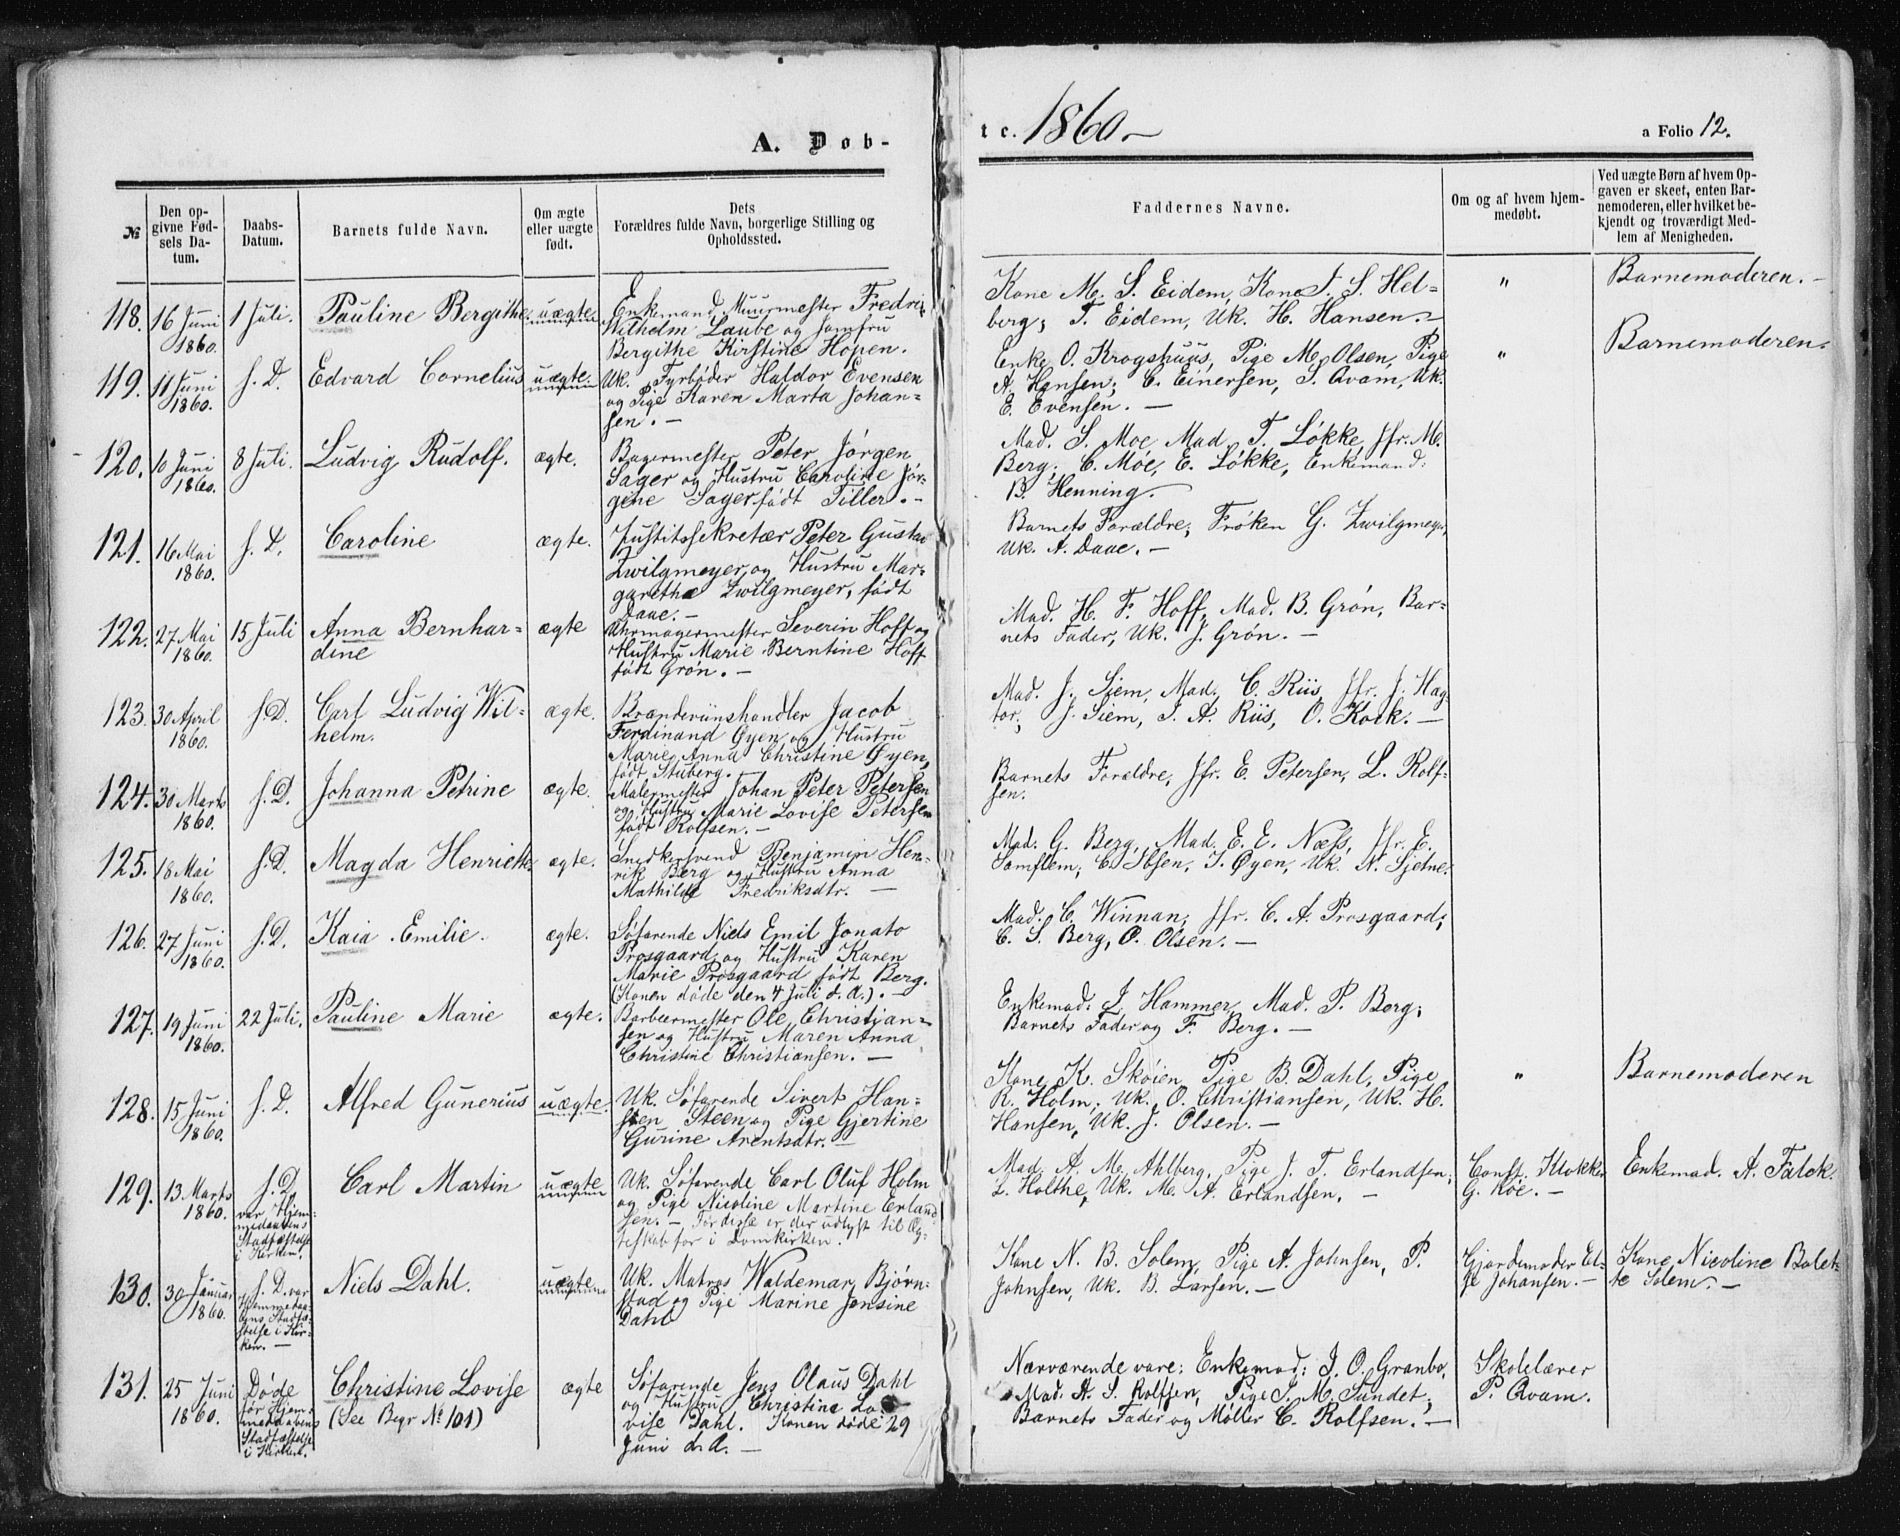 A. Døb-
№
Den op-
givne Fød-
sels Da-
tum.
Daabs-
Datum.
Barnets fulde Navn.
Om ægte
eller uægte
født.
Dets
Forældres fulde Navn, borgerlige Stilling og
Opholdssted.
118. 16 Juni 1860. 1 Juli. Pauline Bergithe uægte
Enkemand Muurmester Fredrik
Wilhelm Laube og Jomfru
Bergithe Kirstine Hopen.
119. 11 Juni 1860. s. D. Edvard Cornelius uægte
Uk. Fyrbøder Haldor Evensen
og Pige Karen Marta Johan-
sen. —
120. 10 Juni 1860. 8 Juli. Ludvig Rudolf. ægte.
Bagermester Peter Jørgen
Sager og Hustru Caroline Jør-
gene Sager født Tiller. —
121. 16 Mai 1860. s. D. Caroline ægte.
Justitssekretær Peter Gustav
Zwilgmeyer og Hustru Mar-
garetha Zwilgmeyer, født
Daae. —
122. 27 Mai 1860. 15 Juli Anna Bernhar-
dine ægte
Uhrmagermester Severin Hoff og
Hustru Marie Berntine Hoff
født Grøn. —
123. 30 April 1860. s. D. Carl Ludvig Wil-
helm. ægte.
Brændeviinshandler Jacob
Ferdinand Øyen og Hustru
Marie Anna Christine Øyen,
født Stuberg.
124. 30 Marts 1860. s. D. Johanna Petrine ægte.
Malermester Johan Peter Petersen
og Hustru Marie Lovise Petersen
født Rolfsen. —
125. 18 Mai 1860. s. D. Magda Henriette ægte.
Snedkersvend Benjamin Hen-
rik Berg og Hustru Anna
Mathilde Fredriksdtr. —
126. 27 Juni 1860. s. D. Kaia Emilie. ægte.
Søfarende Niels Emil Jonato
Prosgaard og Hustru Karen
Marie Prosgaard født Berg.
(Konen døde den 4 Juli d. A.). —
127. 19 Juni 1860. 22 Juli. Pauline Marie ægte.
Barbeermester Ole Christian-
sen og Hustru Maren Anna
Christine Christiansen. —
128. 15 Juni 1860. s. D. Alfred Gunerius uægte.
Uk. Søfarende Sivert Han-
sen Steen og Pige Gjertine
Gurine Arentsdtr. —
129. 13 Marts 1860. s. D.
var Hjem-
medaabens
Stadfæstelse
i Kirken.
Carl Martin uægte
Uk. Søfarende Carl Oluf Holm
og Pige Nicoline Martine Erland-
sen. — For disse er der udlyst til Æg-
teskab før i Domkirken.
130. 30 Januar 1860. s. D. var
Hjemmedaa-
bens Stadfæ-
stelse i Kir-
ken. —
Niels Dahl. uægte
Uk. Matros Waldemar Bjørn-
stad og Pige Marine Jensine
Dahl
131. 25 Juni 1860. Døde
før Hjem-
medaabens
Stadfæstelse
i Kirken.
Christine Lovise
(See Begr № 101) ægte
Søfarende Jens Olaus Dahl
og Hustru Christine Lo-
vise Dahl. Konen døde 29
Juni d. A. —
te. 1860 —
a Folio 12.
Faddernes Navne.
Om og af hvem hjem-
medøbt.
Ved uægte Børn af hvem Op-
gaven er skeet, enten Bar-
nemoderen, eller hvilket be-
kjendt og troværdigt Med-
lem af Menigheden.
Kone M. S. Eidem, Kone J. S. Hel-
berg; T. Eidem, Uk. H. Hansen. — " Barnemoderen. —
Enke O. Krogshuus, Pige M. Olsen, Pige
A. Hansen; C. Einersen, S. Qvam, Uk.
E. Evensen. — " Barnemoderen.
Mad. S. Moe, Mad. T. Løkke, Jfr. M.
Berg; C. Moe, E. Løkke, Enkemand:
B. Henning.
Barnets Forældre; Frøken G. Zwilgmeyer,
Uk. A. Daae. —
Mad. H. F. Hoff, Mad. B. Grøn, Bar-
nets Fader, Uk. J. Grøn. —
Mad. J. Siem, Mad. C. Riis, Jfr. J. Hag-
tor; J. Siem, S. A. Riis, O. Kock. —
Barnets Forældre, Jfr. E. Petersen, L. Rolf-
sen.
Mad. G. Berg, Mad. E. E. Næss, Jfr. E.
Samslem; C. Ibsen, I. Øyen, Uk. N. Sjetne.
Mad. C. Winnan; Jfr. C. A. Prosgaard;
C. S. Berg, O. Olsen. —
Enkemad. I. Hammer, Mad. P. Berg;
Barnets Fader og F. Berg. —
Kone K. Skøien, Pige B. Dahl, Pige
R. Holm; Uk. O. Christiansen, Uk. H.
Hansen, Uk. J. Olsen. — " Barnemoderen
Mad. A. M. Ahlberg, Pige J. T. Erlandsen;
L. Holthe, Uk. M. A. Erlandsen. —
Const. Klokker
G. Koe. —
Enkemad. A. Falck.
Kone N. B. Solem, Pige A. Johnsen, P.
Johnsen, Uk. B. Larsen. —
Gjordemoder El-
se Johansen. —
Kone Nicoline Bolet-
te Solem. —
Nærværende vare: Enkemad: J. O. Granbo,
Mad. A. S. Rolfsen, Pige J. M. Sundet;
Barnets Fader og Møller C. Rolfsen. —
Skolelærer
P. Qvam.